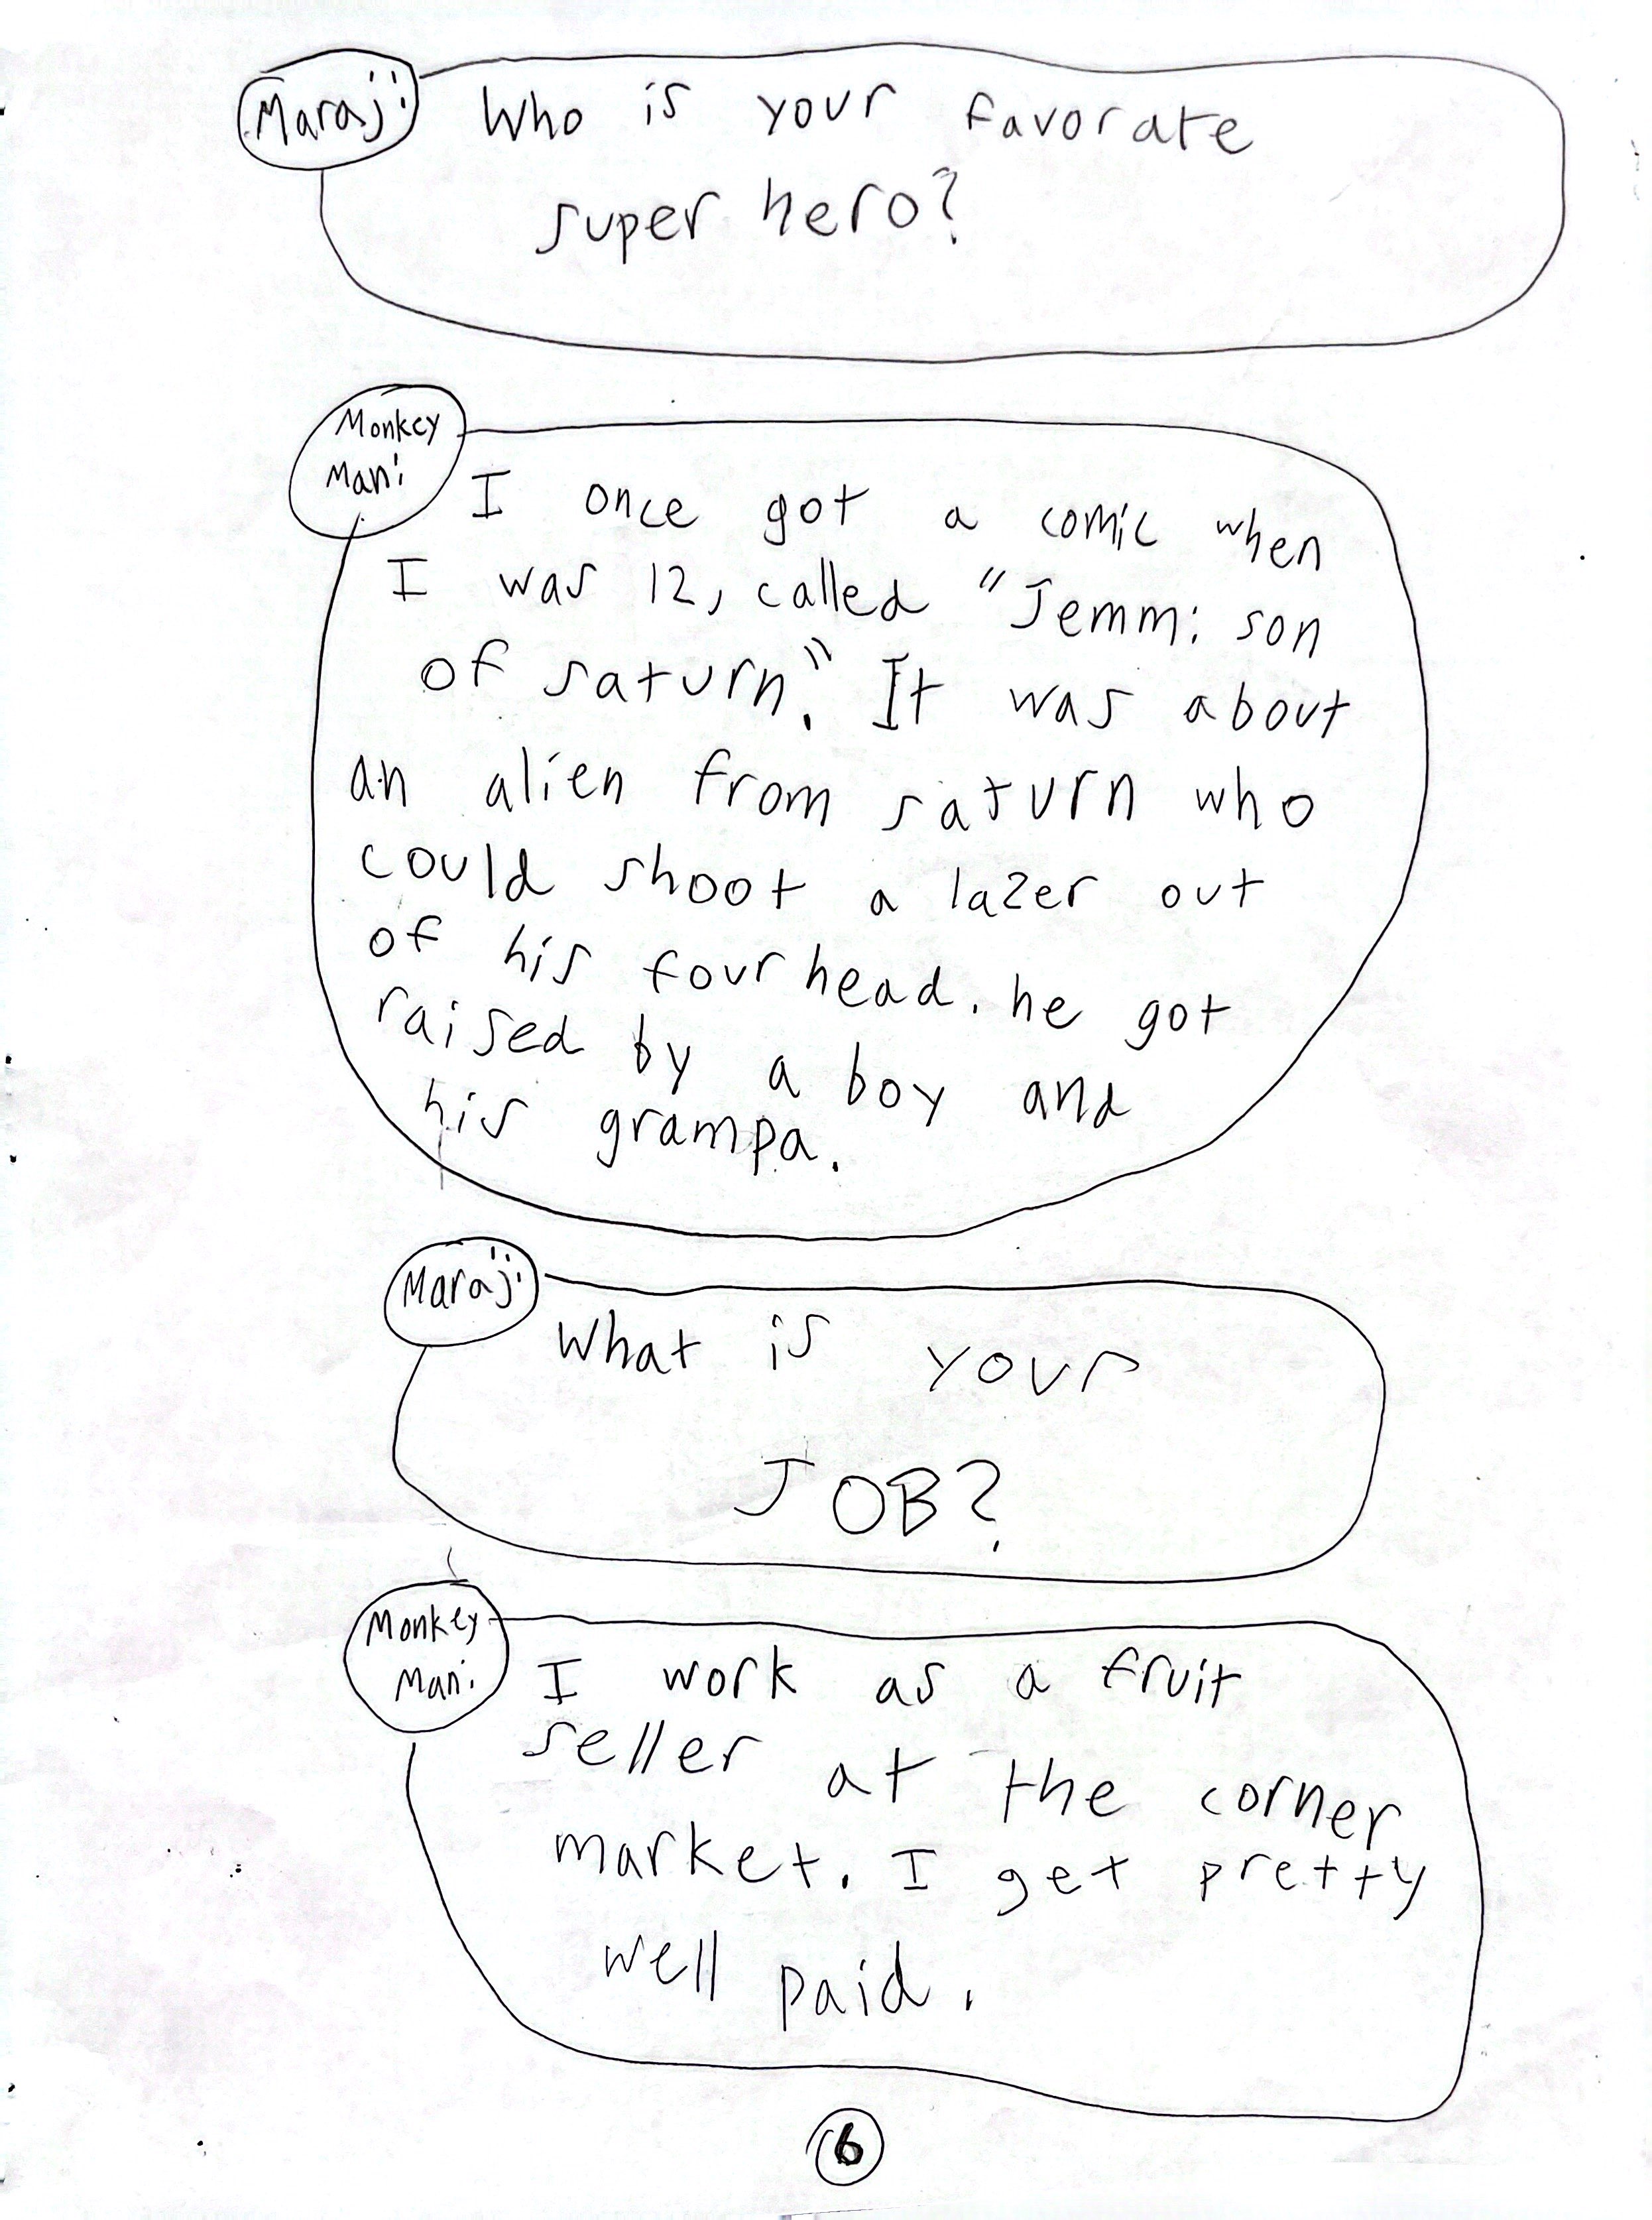 Maraji: Who is your favorate
super hero?
Monkey
Man: I once got a comic when
I was 12, called "Jemm: son
of saturn." It was about
an alien from saturn who
could shoot a lazer out
of his fourhead. he got
raised by a boy and
his grampa.
Maraji: What is your
JOB?
Monkey
Man: I work as a fruit
seller at the corner
market. I get pretty
well paid.
6